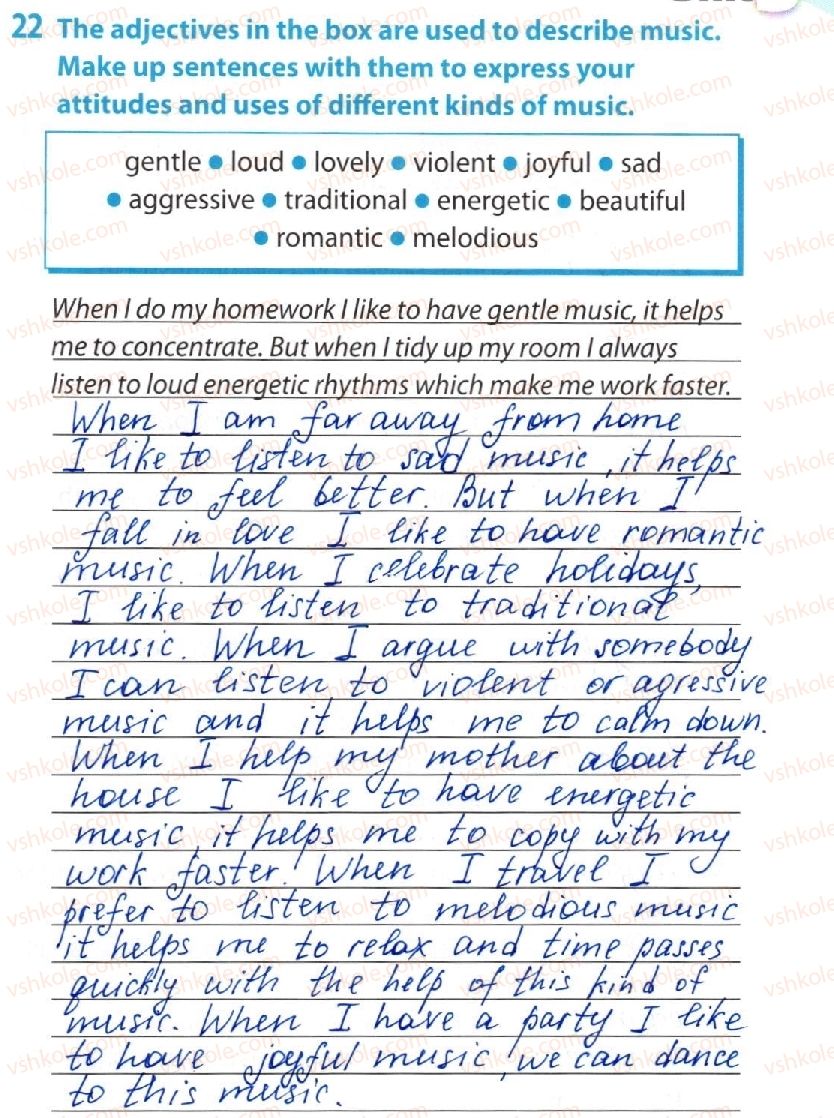 22 The adjectives in the box are used to describe music.
Make up sentences with them to express your
attitudes and uses of different kinds of music.
gentle • loud • lovely • violent • joyful • sad
• aggressive • traditional • energetic • beautiful
• romantic • melodious
When I do my homework I like to have gentle music, it helps
me to concentrate. But when I tidy up my room I always
listen to loud energetic rhythms which make me work faster.
When I am far away from home
I like to listen to sad music, it helps
me to feel better. But when I
fall in love I like to have romantic
music. When I celebrate holidays,
I like to listen to traditional
music. When I argue with somebody
I can listen to violent or agressive
music and it helps me to calm down.
When I help my mother about the
house I like to have energetic
music, it helps me to copy with my
work faster. When I travel I
prefer to listen to melodious music
it helps me to relax and time passes
quickly with the help of this kind of
music. When I have a party I like
to have joyful music, we can dance
to this music.
vshkole.com